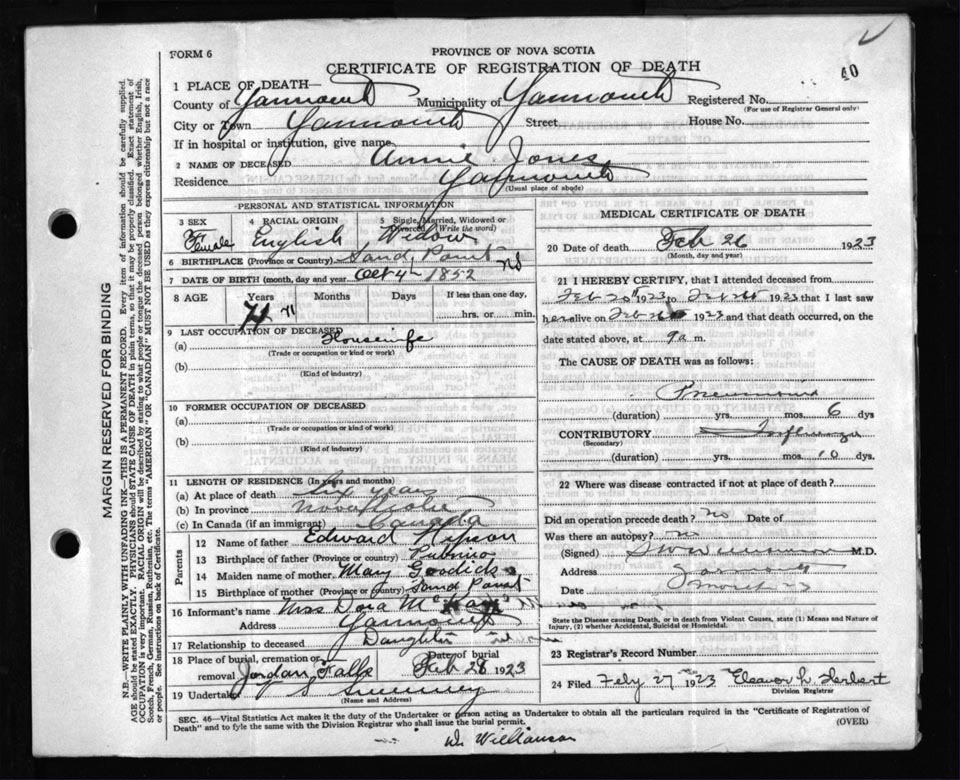 FORM 6
PROVINCE OF NOVA SCOTIA
CERTIFICATE OF REGISTRATION OF DEATH
40
1 PLACE OF DEATH—
County of Yarmouth Municipality of Yarmouth Registered No.
(For use of Registrar General only)
City or Town Yarmouth Street House No.
If in hospital or institution, give name
2 NAME OF DECEASED Annie Jones
Residence Yarmouth
(Usual place of abode)
PERSONAL AND STATISTICAL INFORMATION
3 SEX Female
4 RACIAL ORIGIN English
5 Single, Married, Widowed or Divorced (Write the word) Widow
6 BIRTHPLACE (Province or Country) Sand Point NS
7 DATE OF BIRTH (month, day and year) Oct 4th 1852
8 AGE Years Months Days If less than one day,
71 hrs. or min.
9 LAST OCCUPATION OF DECEASED
(a) Housewife
(Trade or occupation or kind or work)
(b)
(Kind of industry)
10 FORMER OCCUPATION OF DECEASED
(a)
(Trade or occupation or kind of work)
(b)
(Kind of industry)
11 LENGTH OF RESIDENCE (In years and months)
(a) At place of death six year
(b) In province Nova Scotia
(c) In Canada (if an immigrant) Canada
Parents
12 Name of father Edward
13 Birthplace of father (Province or country) Pubnico
14 Maiden name of mother Mary Goodick
15 Birthplace of mother (Province or country) Sand Point
16 Informant's name Miss Dora
Address Yarmouth
17 Relationship to deceased Daughter
18 Place of burial, cremation or removal Jordan Falls Date of burial Feb 28 1923
19 Undertaker S Sweeney
(Name and Address)
MEDICAL CERTIFICATE OF DEATH
20 Date of death Feb 26 1923
(Month, day and year)
21 I HEREBY CERTIFY, that I attended deceased from
Feb 20 1923 to Feb 26 1923 that I last saw
her alive on Feb 1923 and that death occurred, on the
date stated above, at 9 a m.
The CAUSE OF DEATH was as follows:
Pneumonia
(duration) yrs. mos. 6 dys
CONTRIBUTORY Influenza
(Secondary)
(duration) yrs. mos. 10 dys.
22 Where was disease contracted if not at place of death?
Did an operation precede death? no Date of
Was there an autopsy? no
(Signed) M.D.
Address Yarmouth
Date
State the Disease causing Death, or in death from Violent Causes, state (1) Means and Nature of
Injury, (2) whether Accidental, Suicidal or Homicidal.
23 Registrar's Record Number
24 Filed Feby 27 1923 Eleanor L. Herbert
Division Registrar
SEC. 46—Vital Statistics Act makes it the duty of the Undertaker or person acting as Undertaker to obtain all the particulars required in the "Certificate of Registration of
Death" and to fyle the same with the Division Registrar who shall issue the burial permit.
(OVER)
W. Williamson
MARGIN RESERVED FOR BINDING
N.B.—WRITE PLAINLY WITH UNFADING INK—THIS IS A PERMANENT RECORD. Every item of information should be carefully supplied.
AGE should be stated EXACTLY. PHYSICIANS should STATE CAUSE OF DEATH in plain terms, so that it may be properly classified. Exact statement of
OCCUPATION is very important. RACIAL ORIGIN will be described by stating to what people or tongue the deceased person belonged whether English, Irish,
Scotch, French, German, Russian, Ruthenian, etc. The terms "AMERICAN" OR "CANADIAN" MUST NOT BE USED as they express citizenship but not, a race
or people. See instructions on back of Certificate.